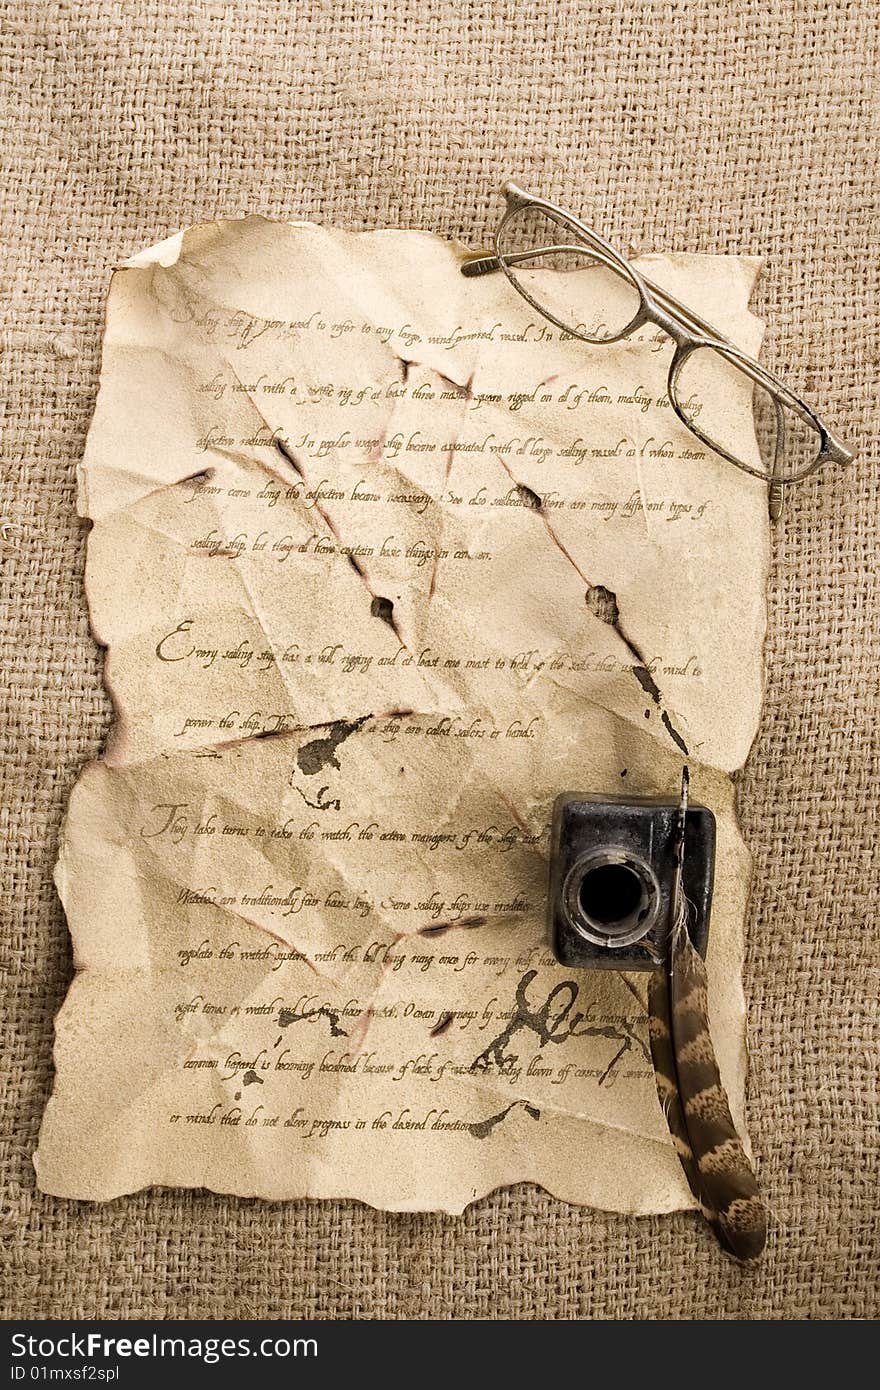 Sailing ship is now used to refer to any large, wind-powered, vessel. In technical a ship
sailing vessel with a specific rig of at least three masts, square rigged on all of them, making the sailing
adjective redundant. In popular usage ship became associated with all large sailing vessels and when steam
power came along the adjective became necessary. See also sailboat. There are many different types of
sailing ship, but they all have certain basic things in common.
Every sailing ship has a hull, rigging and at least one mast to hold up the sails that use the wind to
power the ship. The of a ship are called sailors or hands.
They take turns to take the watch, the active managers of the ship and
Watches are traditionally four hours long. Some sailing ships use
regulate the watch system, with the bell being rung once for every half
eight times or watch and a four hour watch. Ocean journeys by sailing can take many
common hazard is becoming becalmed because of lack of wind, or being blown off course by severe
or winds that do not allow progress in the desired direction.
StockFreeImages.com
ID 01mxsf2spl